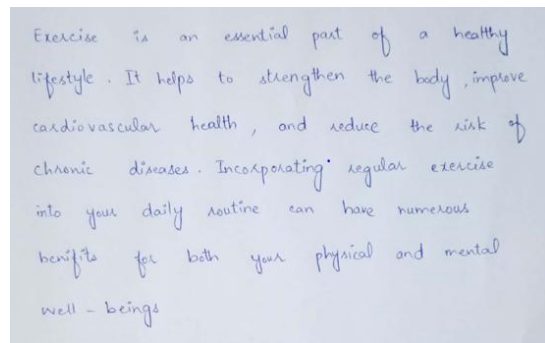 Exercise is an essential part of a healthy
lifestyle. It helps to strengthen the body, improve
cardiovascular health, and reduce the risk of
chronic diseases. Incorporating regular exercise
into your daily routine can have numerous
benifits for both your physical and mental
well-beings